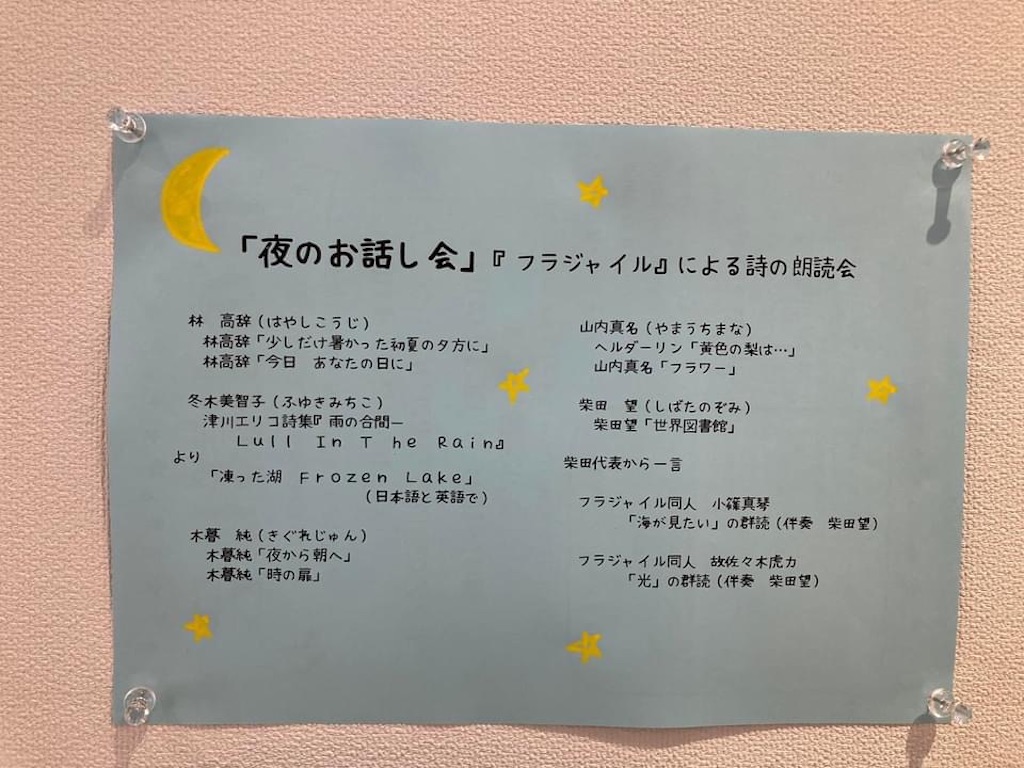 「夜のお話し会」『フラジャイル』による詩の朗読会
林　高辞（はやしこうじ）
林高辞「少しだけ暑かった初夏の夕方に」
林高辞「今日　あなたの日に」
冬木美智子（ふゆきみちこ）
津川エリコ詩集『雨の合間—
Lull In The Rain』
より
「凍った湖 Frozen Lake」
（日本語と英語で）
木暮　純（きぐれじゅん）
木暮純「夜から朝へ」
木暮純「時の扉」
山内真名（やまうちまな）
ヘルダーリン「黄色の梨は…」
山内真名「フラワー」
柴田　望（しばたのぞみ）
柴田望「世界図書館」
柴田代表から一言
フラジャイル同人　小篠真琴
「海が見たい」の群読（伴奏　柴田望）
フラジャイル同人　故佐々木虎力
「光」の群読（伴奏　柴田望）